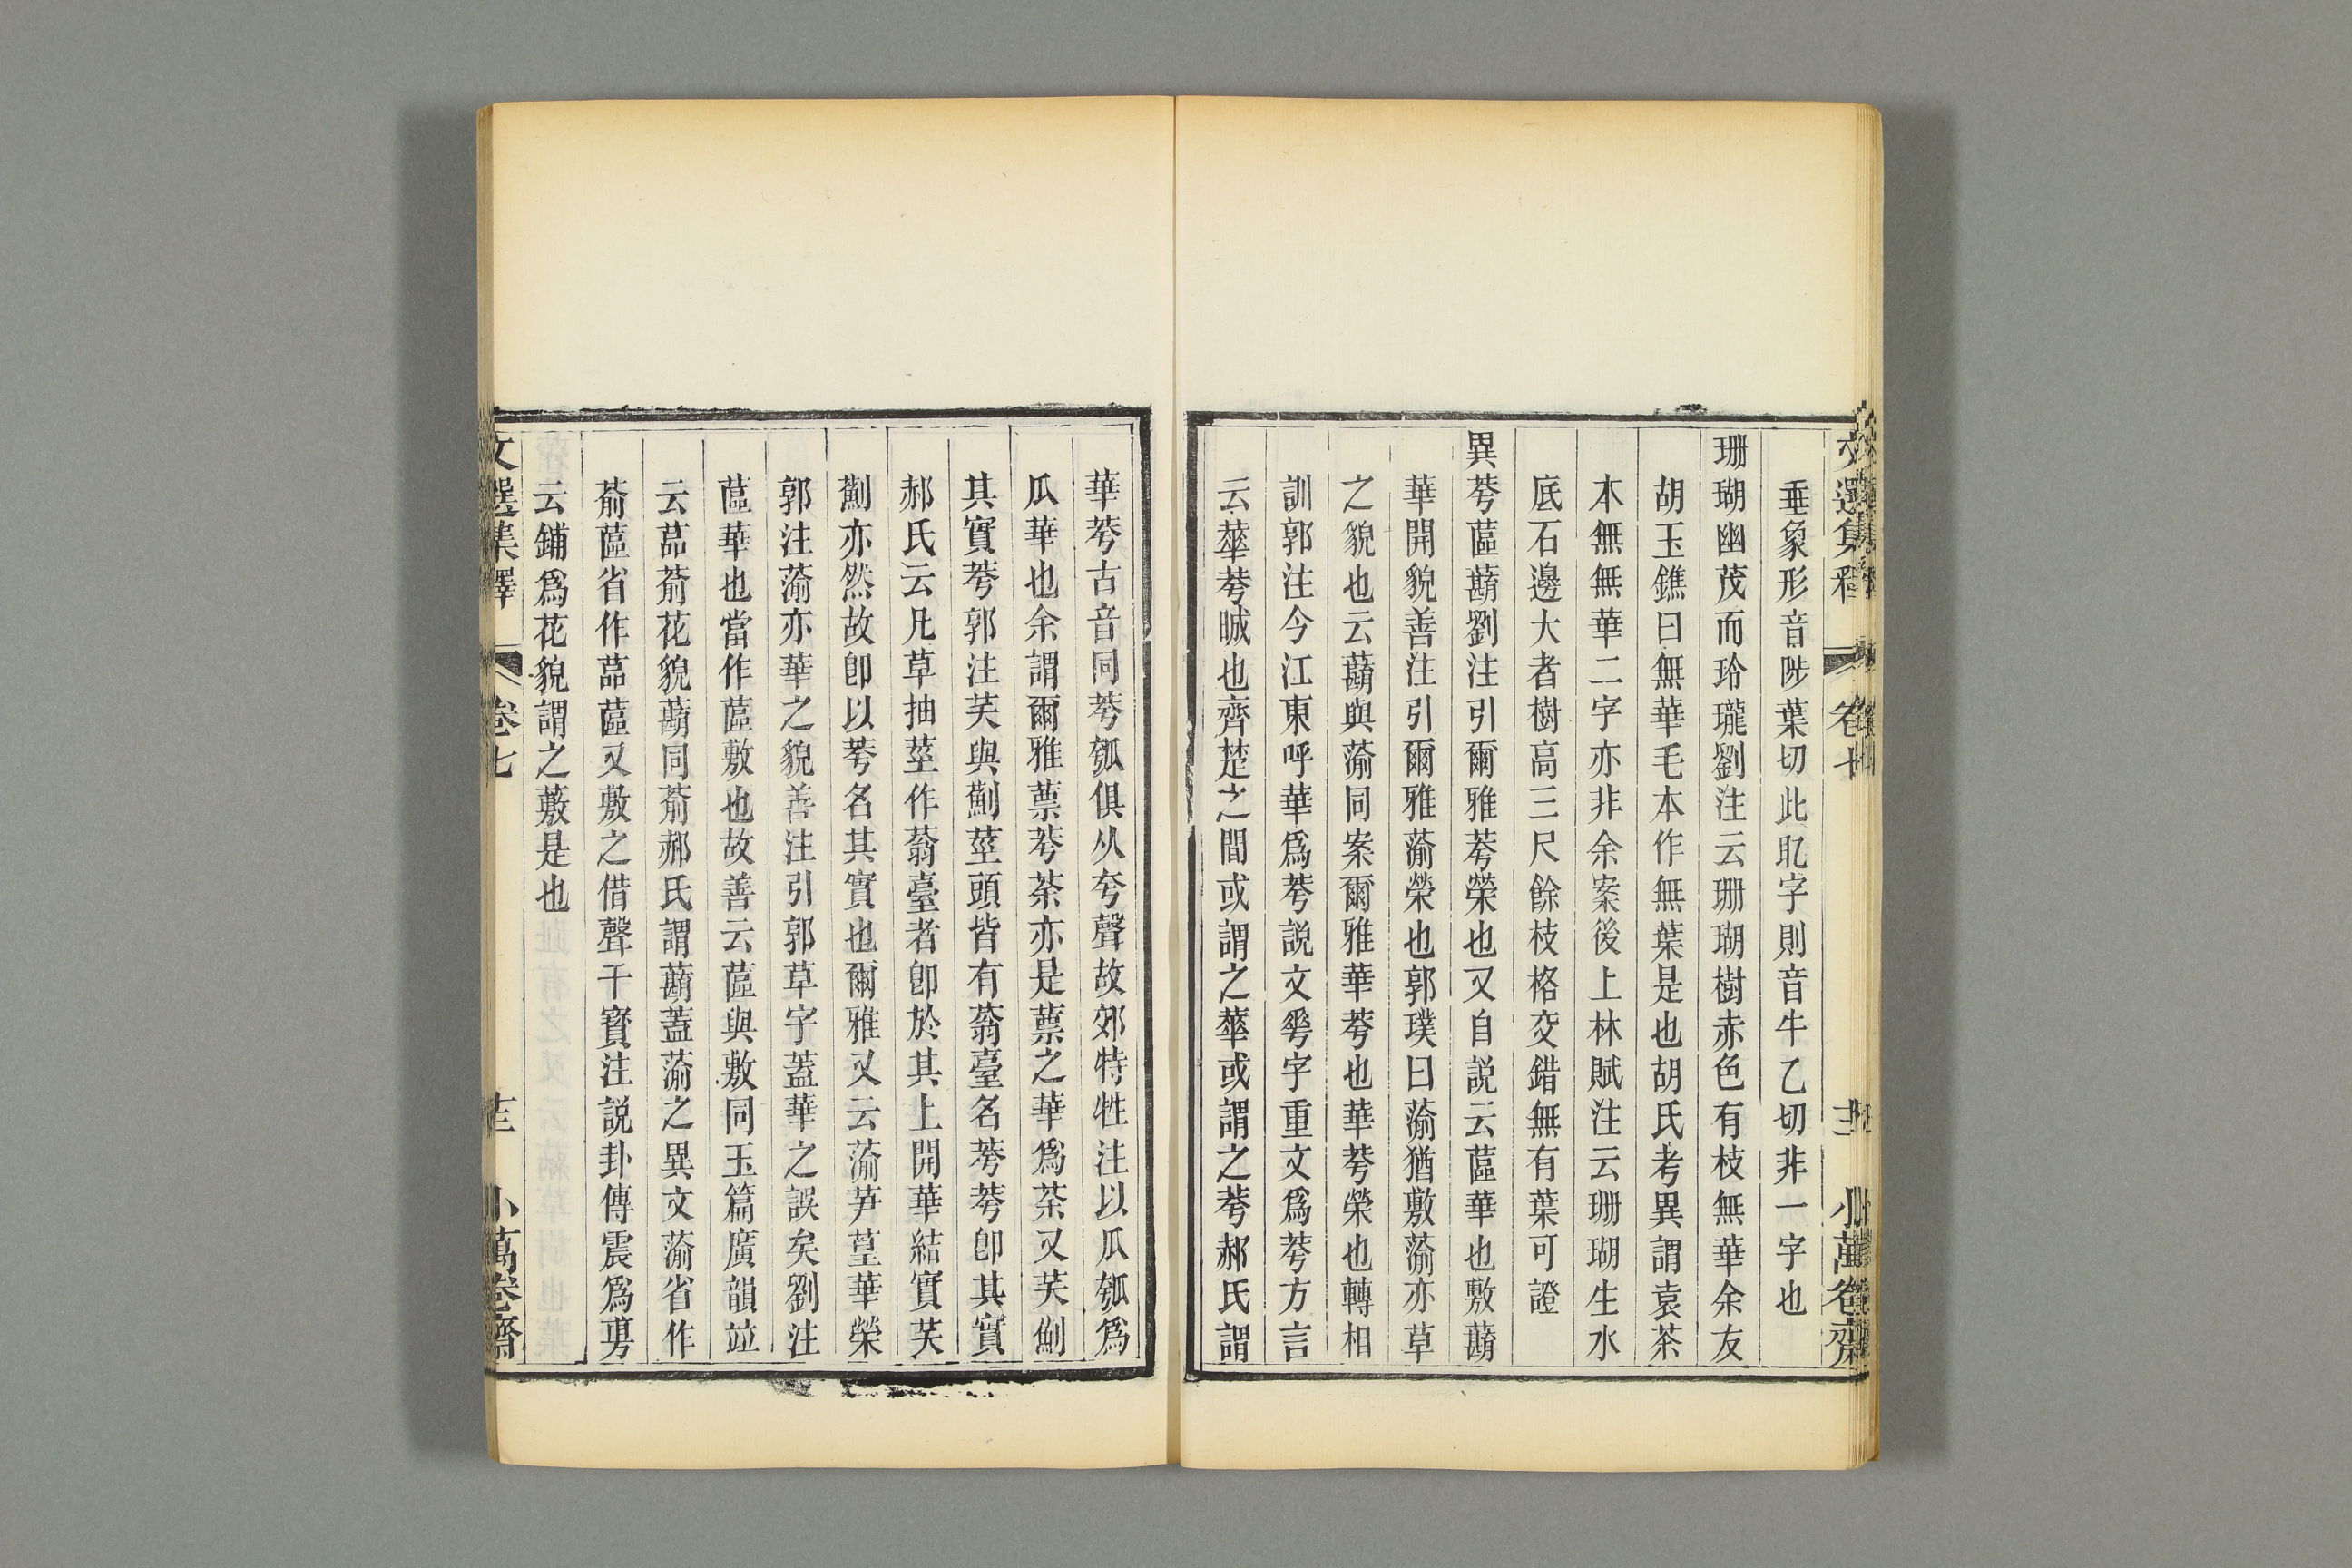 垂象形音陟葉切此耴字則音牛乙切非一字也
珊瑚幽茂而玲瓏劉注云珊瑚樹赤色有枝無華余友
胡玉鐎曰無華毛本作無葉是也胡氏考異謂袁茶
本無無華二字亦非余案後上林賦注云珊瑚生水
底石邊大者樹高三尺餘枝格交錯無有葉可證
異荂蓲蘛劉注引爾雅荂榮也又自説云蓲華也敷蘛
華開貌善注引爾雅蕍榮也郭璞曰蕍猶敷蕍亦草
之貌也云蘛與蕍同案爾雅華荂也華荂榮也轉相
訓郭注今江東呼華爲荂説文𠌶字重文爲荂方言
云蕐荂晠也齊楚之間或謂之蕐或謂之荂郝氏謂
華荂古音同荂瓠俱从夸聲故郊特牲注以瓜瓠爲
瓜華也余謂爾雅蔈荂荼亦是蔈之華爲荼又芺薊
其實荂郭注芺與薊莖頭皆有蓊臺名荂荂卽其實
郝氏云凡草抽莖作蓊臺者卽於其上開華結實芺
薊亦然故卽以荂名其實也爾雅又云蕍芛葟華榮
郭注蕍亦華之貌善注引郭草字蓋華之誤矣劉注
蓲華也當作蓲敷也故善云蓲與敷同玉篇廣韻竝
云蒚葥花貌蘛同葥郝氏謂蘛蓋蕍之異文蕍省作
葥蓲省作蒚蓲又敷之借聲干寶注説卦傳震爲旉
云鋪爲花貌謂之藪是也
文選集釋
卷七
小萬卷齋